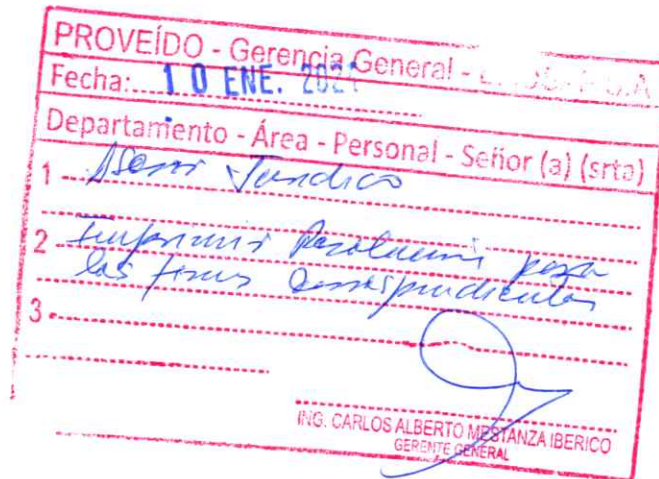 PROVEÍDO - Gerencia General - S.A
Fecha: 10 ENE. 2021
Departamento - Área - Personal - Señor (a) (srta)
1 Asesor Jurídico
2 Resolución para
las fines correspondientes
3.
ING. CARLOS ALBERTO MESTANZA IBERICO
GERENTE GENERAL